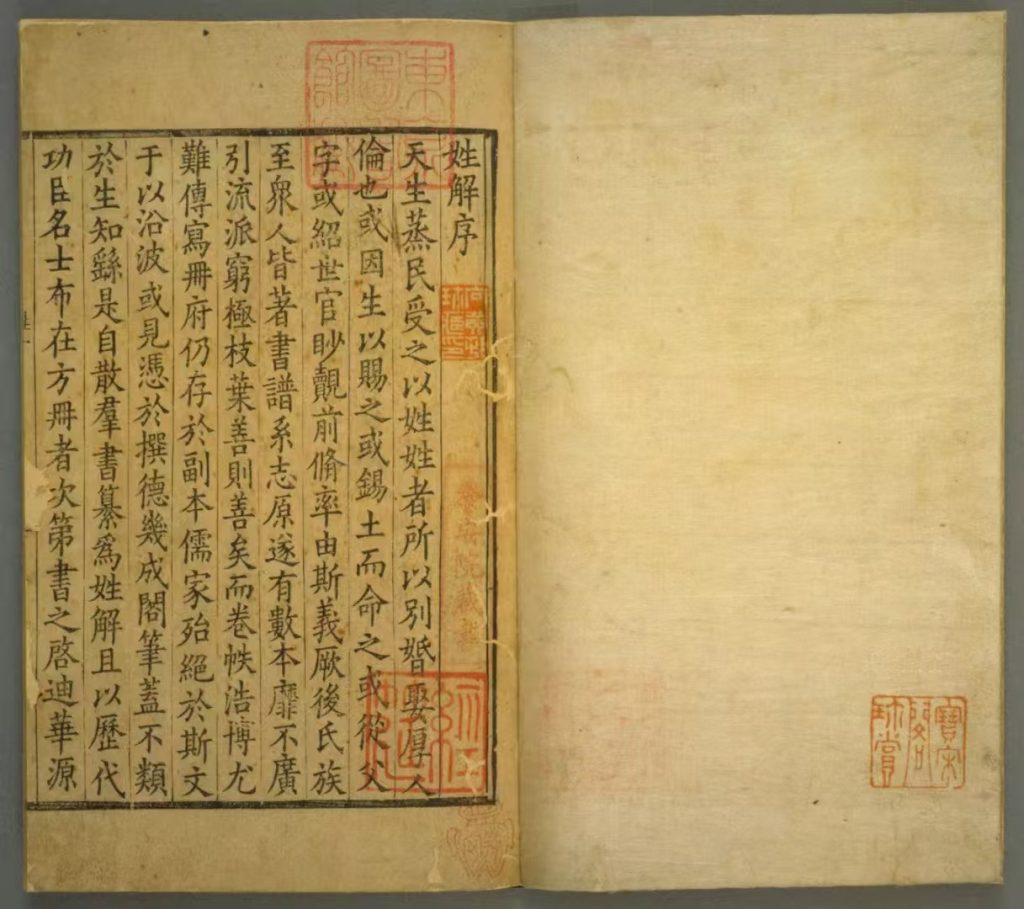 姓解序
天生蒸民受之以姓姓者所以別婚娶厚人
倫也或因生以賜之或錫土而命之或從父
字或紹世官眇覿前脩率由斯義厥後氏族
至衆人皆著書譜系志原遂有數本靡不廣
引流派窮極枝葉善則善矣而卷帙浩博尤
難傳寫冊府仍存於副本儒家殆絕於斯文
于以沿波或見憑於撰德幾成閣筆蓋不類
於生知繇是自散羣書纂爲姓解且以歷代
功臣名士布在方冊者次第書之啓迪華源
寶宋閣珍賞